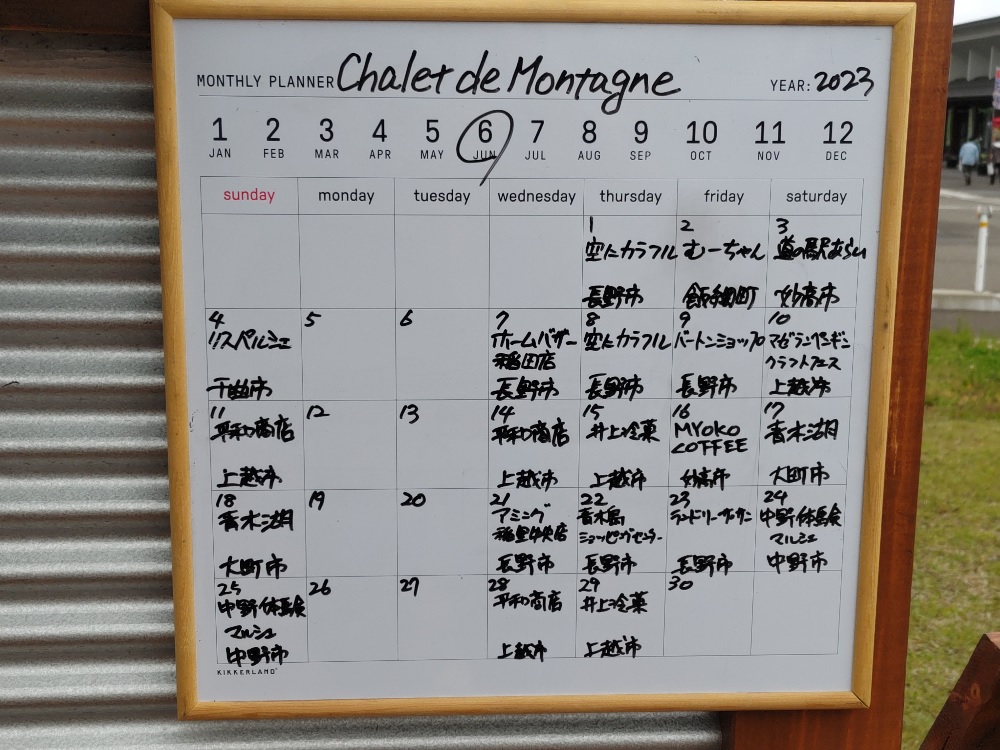 MONTHLY PLANNER Chalet de Montagne YEAR: 2023
1 2 3 4 5 6 7 8 9 10 11 12
JAN FEB MAR APR MAY JUN JUL AUG SEP OCT NOV DEC
sunday monday tuesday wednesday thursday friday saturday
1 2 3
空にカラフル むーちゃん 道の駅あらい
長野市 飯綱町 妙高市
4 5 6 7 8 9 10
リスパルシェ ホームバザー 空にカラフル バートンショップ マゼランペンギン
稲田店 クラフトフェス
千曲市 長野市 長野市 長野市 上越市
11 12 13 14 15 16 17
平和商店 平和商店 井上冷菓 MYOKO 青木湖
COFFEE
上越市 上越市 上越市 妙高市 大町市
18 19 20 21 22 23 24
青木湖 アミング 青木島 ランドリー 中野体験
稲里中央店 ショッピングセンター マルシェ
大町市 長野市 長野市 長野市 中野市
25 26 27 28 29 30
中野体験 平和商店 井上冷菓
マルシェ
中野市 上越市 上越市
KIKKERLAND